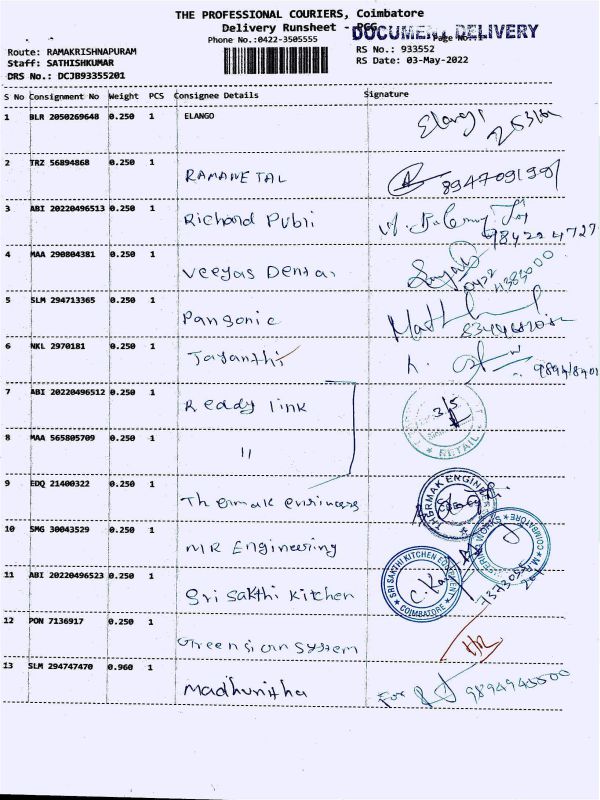 THE PROFESSIONAL COURIERS, Coimbatore
Delivery Runsheet - PCG
DOCUMENT DELIVERY
Phone No.:0422-3505555
Page No.:1
Route: RAMAKRISHNAPURAM
RS No.: 933552
Staff: SATHISHKUMAR
RS Date: 03-May-2022
DRS No.: DCJB93355201
S No Consignment No Weight PCS Consignee Details Signature
1 BLR 2050269648 0.250 1 ELANGO Elango
2 TRZ 56894868 0.250 1 RAMANETAL 8947091991
3 ABI 20220496513 0.250 1 Richard Publi
4 MAA 290804381 0.250 1 Veeyas Dental 0422 4383000
5 SLM 294713365 0.250 1 Pansonic
6 NKL 2970181 0.250 1 Jayanthi
7 ABI 20220496512 0.250 1 Ready link 3/5
RETAIL
8 MAA 565805709 0.250 1 "
9 EDQ 21400322 0.250 1 Thermak engineers THERMAK ENGINEERS
10 SMG 30043529 0.250 1 MR Engineering COIMBATORE
11 ABI 20220496523 0.250 1 Sri Sakthi Kitchen SRI SAKTHI KITCHEN EQUIPMENT COIMBATORE
12 PON 7136917 0.250 1 Greensign System
13 SLM 294747470 0.960 1 Madhunitha For 9894945500